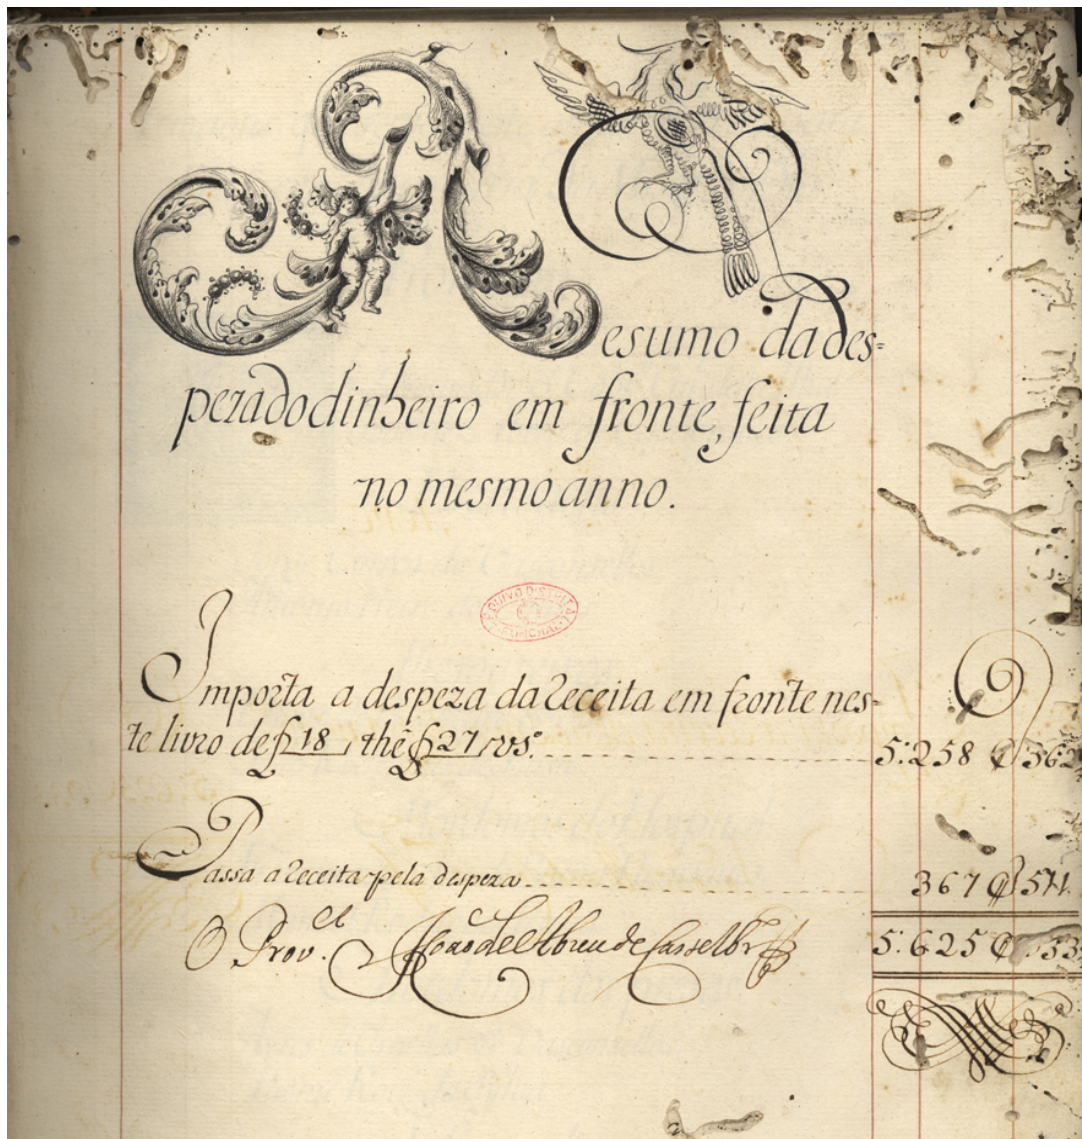 Resumo da des=
peza do dinheiro em fronte, feita
no mesmo anno.
ARQUIVO DISTRITAL
FUNCHAL
Importa a despeza da Receita em fronte nes=
te livro de f 18 thé f 27 vsº 5:258 $ 362
Passa a Receita pela despeza 367 $ 571
O Prov.el João de Abreu de
5:625 $ 933